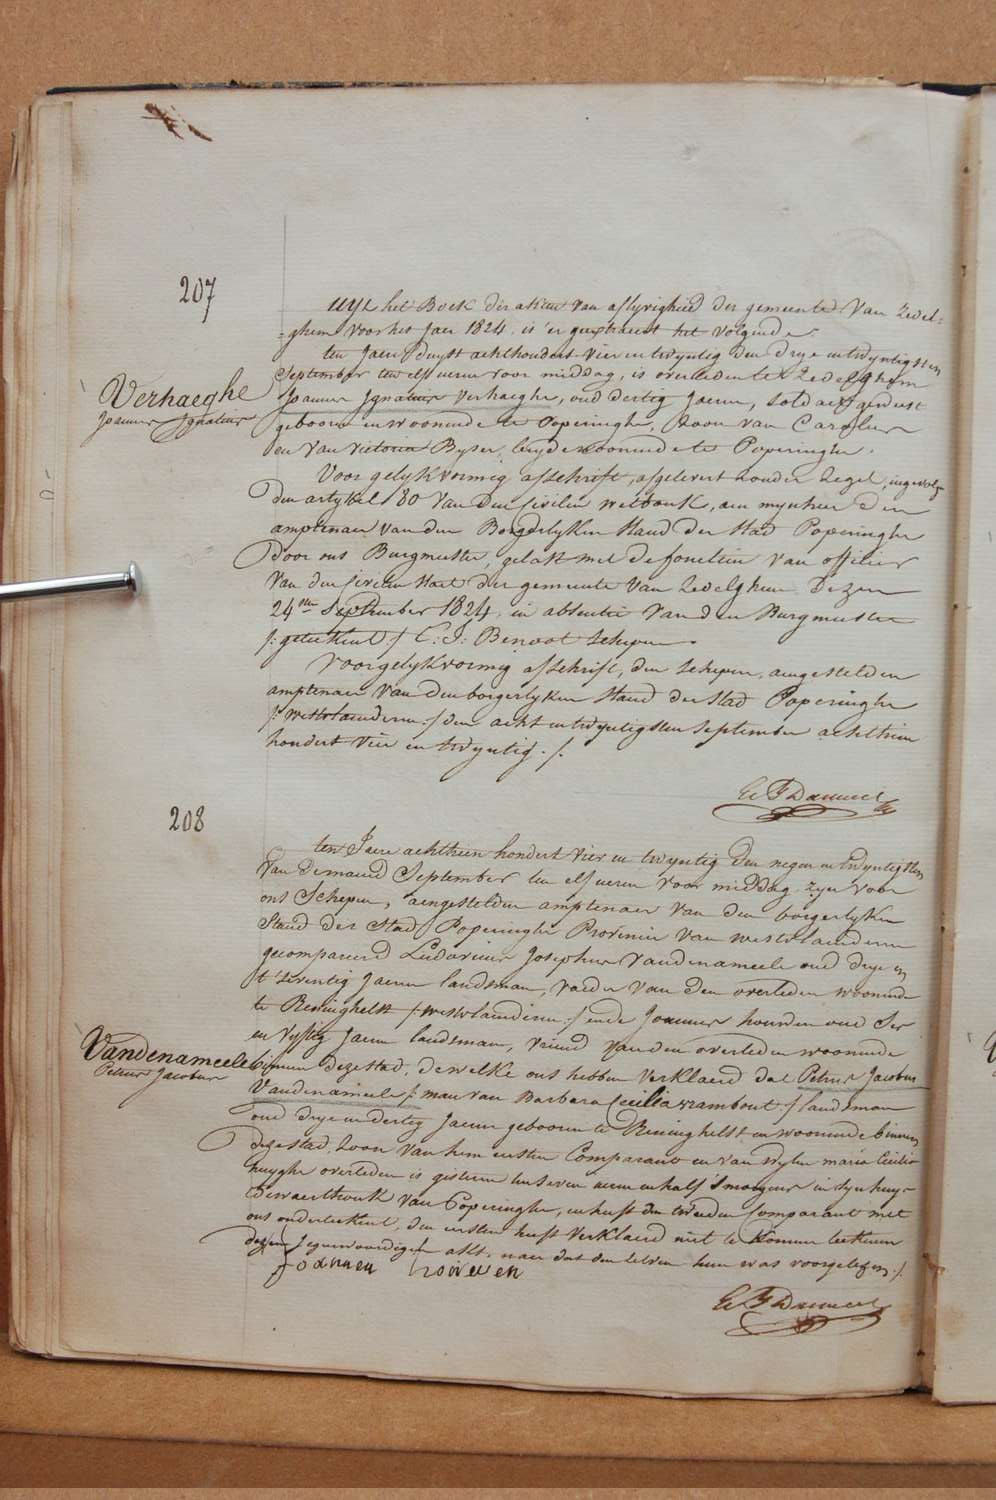 207
uyt het Boek der akten van aflyvigheid der gemeente van Zedel-
-ghem voor het Jaer 1824. is er geextraeert het volgende
ten Jaere duyst achthondert vier en twyntig den drye en twyntigsten
September ten elf ueren voor middag, is overleden te Zedelghem
Verhaeghe
Joannes Ignatius
Joannes Ignatius Verhaeghe, oud dertig Jaeren, soldaet geweest
geboren en woonende te Poperinghe, Zoon van Carolus
en van Victoria Byser, beyde woonende te Poperinghe.
Voor gelykvormig afschrift, afgelevert zonder Zegel, ingevolge
den artykel 80 van den Civilen wetboek, aen mynheer den
amptenaer van den Borgerlyken Stand der Stad Poperinghe
door ons Burgmeester, gelast met de fonctien van officier
van den Civilen staet der gemeente van Zedelghem dezen
24sten September 1824. in absentie van den Burgmeester
/: geteekent :/ C: J: Benoot Schepen.
Voorgelykvormig afschrift, den Schepen, aengestelden
amptenaer van den borgerlyken stand der stad Poperinghe
/: westvlaenderen :/ den acht en twyntigsten September achthien
hondert vier en twyntig ./.
208
ten Jaere achthien hondert vier en twyntig den negen en twyntigsten
van de maend September ten elf ueren voor middag zyn voor
ons Schepen, aengestelden amptenaer van den borgerlyken
Stand der Stad Poperinghe Provincie van westvlaenderen
gecompareerd Ludovicus Josephus Vandenameele oud drye en
t'zeventig Jaeren landsman, vader van den overleden woonende
te Reninghelst /: westvlaenderen :/ ende Joannes houwen oud Ses
en vyftig Jaeren landsman, vriend van den overleden woonende
Vandenameele
Petrus Jacobus
binnen deze stad, dewelke ons hebben verklaerd dat Petrus Jacobus
Vandenameele /: man van Barbara Cecilia wrambout :/ landsman
oud drye en dertig Jaeren geboren te Reninghelst en woonende binnen
deze stad, Zoon van hem eersten Comparant en van wylen maria Cecilia
huyghe overleden is gisteren ten seven ueren en half 's morgens in zyn huys
van Poperinghe, en heeft den tweeden Comparant met
ons onderteekent, den eersten heeft verklaerd niet te konnen teekenen
dezen Jegenwoordigen akt, naer dat den zelven hun was voorgelezen ./.
Joannen hoween